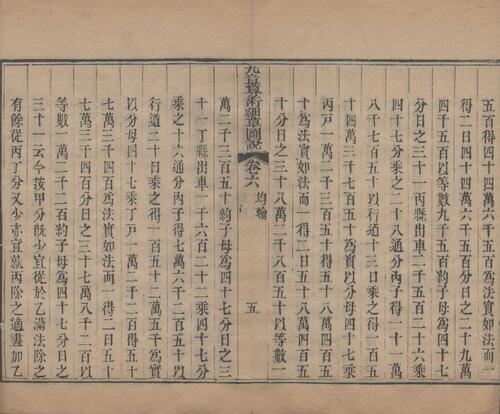 五百得四十四萬六千五百爲法實如法而一
得二日四十四萬六千五百分日之二十九萬
四千五百以等數九千五百約子母爲四十七
分日之三十一丙縣出車二千五百二十六乘
四十七分乘之二十八通分內子得一十一萬
八千七百五十以行道十三日乘之得一百五
十四萬三千七百五十爲實以分母四十七乘
丙戶一萬二千三百五十得五十八萬四百五
十爲法實如法而一得二日五十八萬四百五
十分日之三十八萬二千八百五十以等數一
九章算術細草圖說 卷六 均輸 五
萬二千三百五十約子母爲四十七分日之三
十一丁縣出車一千六百二十二乘四十七分
乘之十六通分內子得七萬六千二百五十以
行道二十日乘之得一百五十二萬五千爲實
以分母四十七乘丁戶一萬二千二百得五十
七萬三千四百爲法實如法而一得二日五十
七萬三千四百分日之三十七萬八千二百以
等數一萬二千二百約子母爲四十七分日之
三十一云今按甲分旣少宜從於乙滿法除之
有餘從丙丁分又少亦宜就丙除之適盡加乙